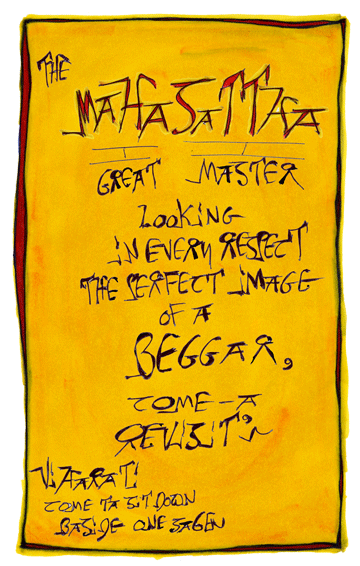 THE
MAHASATTHA
GREAT MASTER
LOOKING
IN EVERY RESPECT
THE PERFECT IMAGE
OF A
BEGGAR,
COME-A
VIHARATI
COME TA SIT DOWN
BASIDE ONE SAGEN